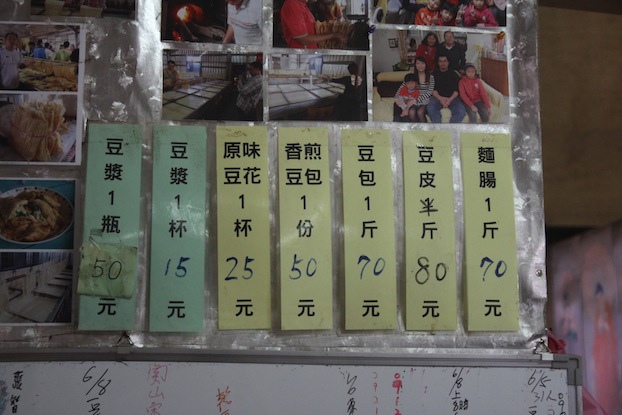 豆漿1瓶50元
豆漿1杯15元
原味豆花1杯25元
香煎豆包1份50元
豆包1斤70元
豆皮半斤80元
麵腸1斤70元
6/8
關山
6/8
6/5